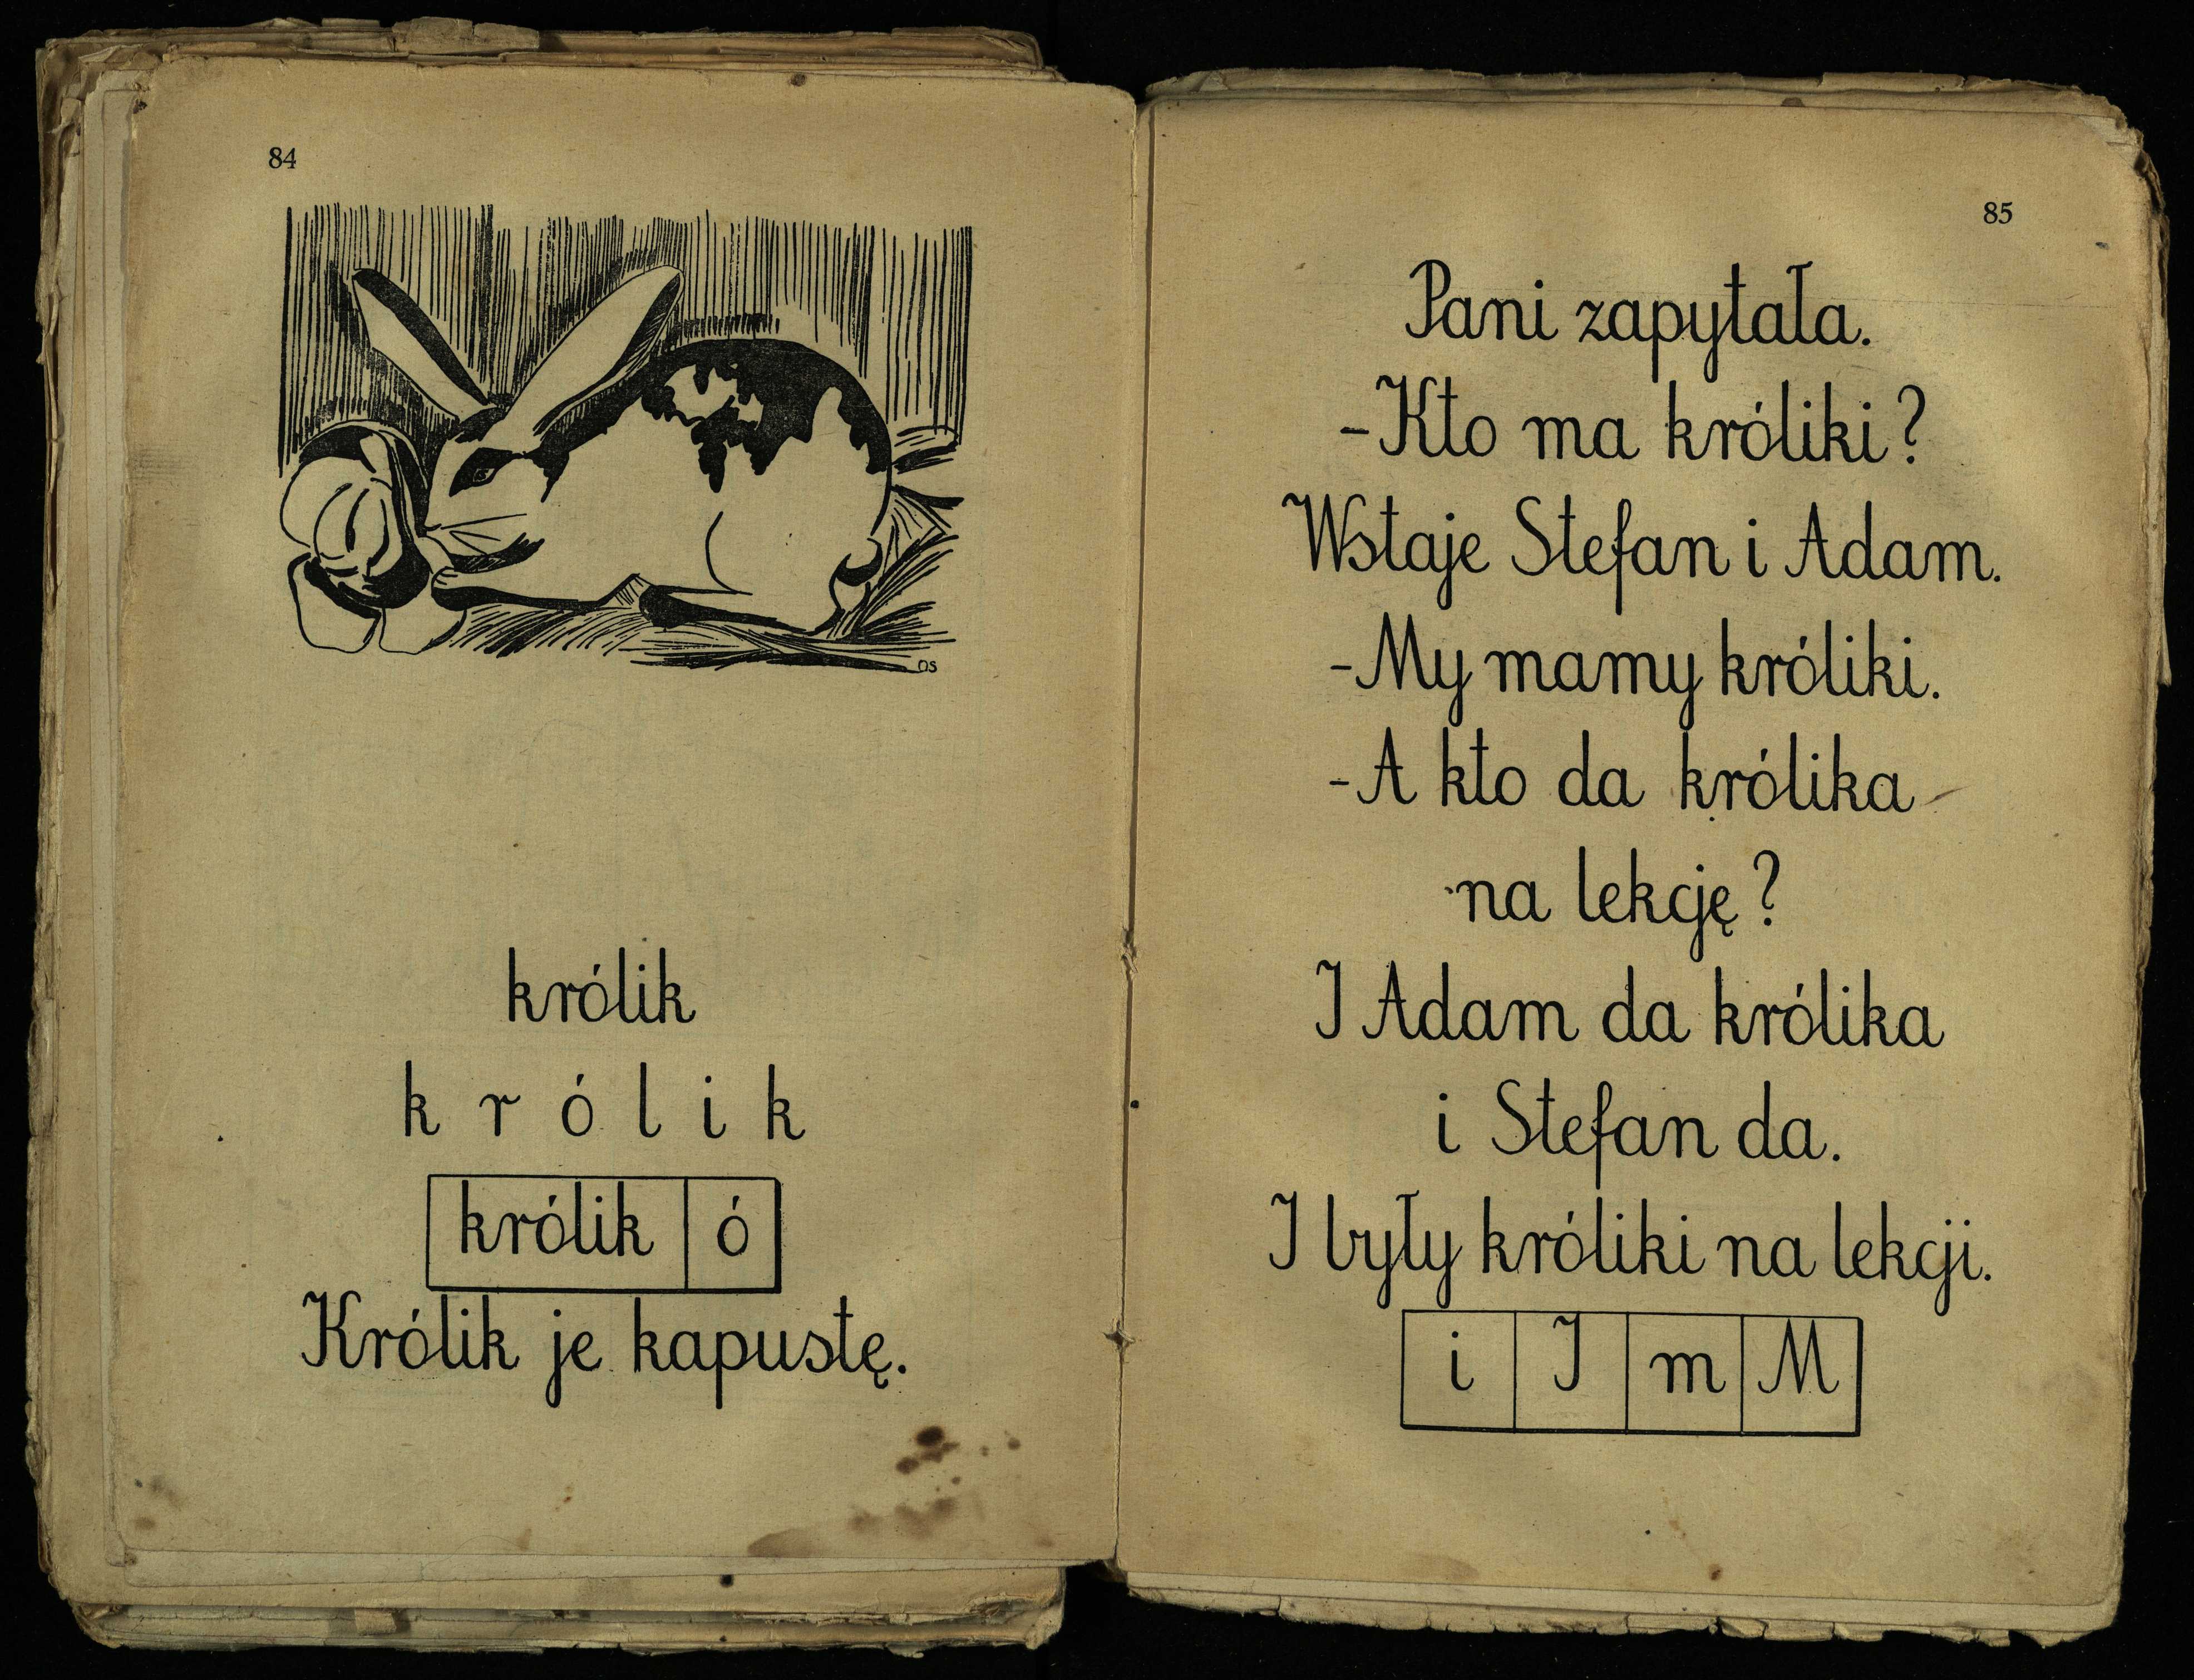 84
OS
królik
k r ó l i k
królik ó
Królik je kapustę.
85
Pani zapytała.
-Kto ma króliki?
Wstaje Stefan i Adam.
-My mamy króliki.
-A kto da królika
na lekcję?
I Adam da królika
i Stefan da.
I były króliki na lekcji.
i I m M